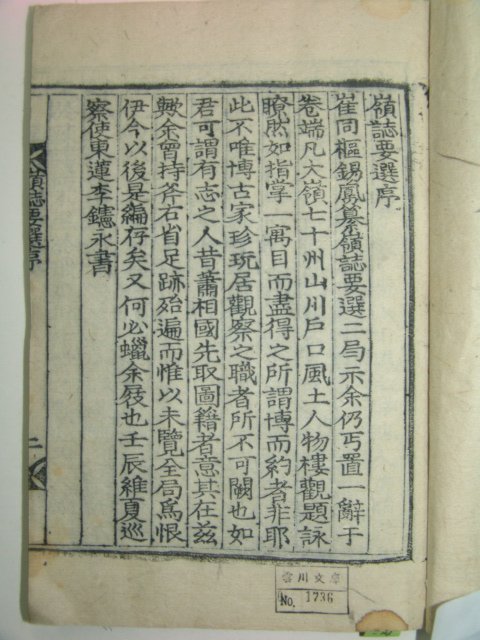 嶺誌要選序
崔同樞錫鳳纂嶺誌要選二局示余仍丐置一辭于
卷端凡大嶺七十州山川戶口風土人物樓觀題詠
瞭然如指掌一寓目而盡得之所謂博而約者非耶
此不唯博古家珍玩居觀察之職者所不可闕也如
君可謂有志之人昔蕭相國先取圖籍者意其在茲
歟余曾持斧右省足跡殆遍而惟以未覽全局爲恨
伊今以後是編存矣又何必蠟余屐也壬辰維夏巡
察使東蓮李𨯶永書
嶺誌要選序
二
雲川文庫
No. 1736